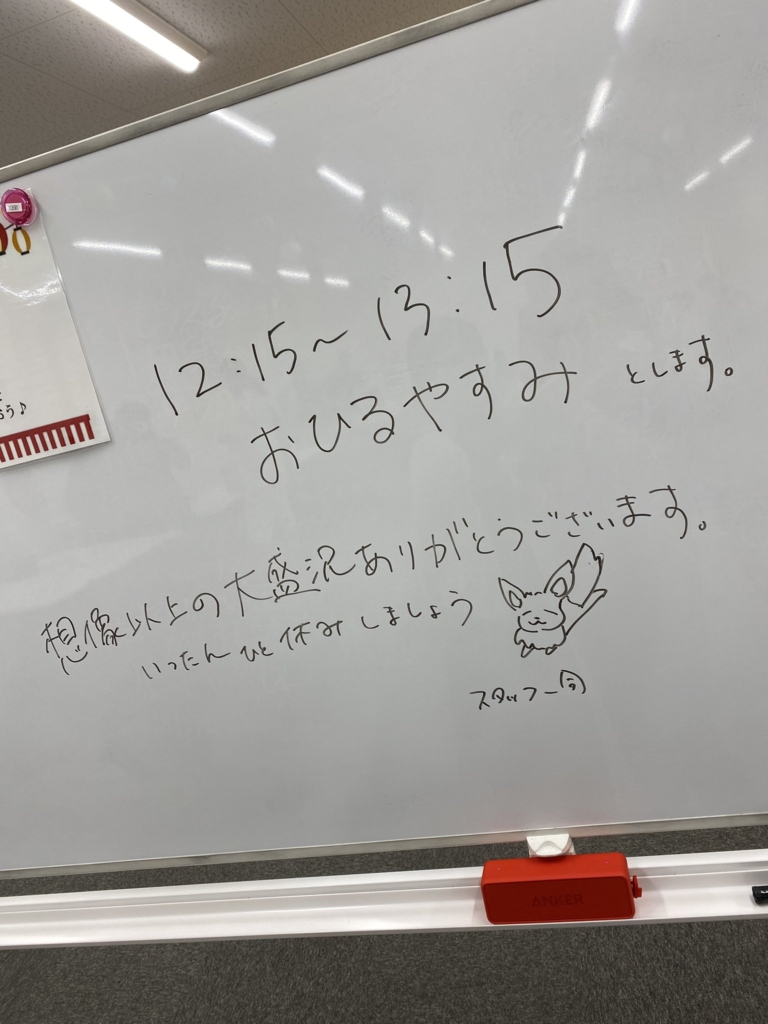 12:15~13:15
おひるやすみ とします。
想像以上の大盛況ありがとうございます。
いったん ひと休みしましょう
スタッフ一同
ANKER